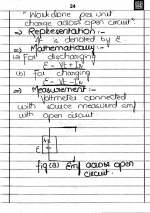 24
"Work done per unit
charge across open circuit"
⇒ Representation :-
It is denoted by ε.
⇒ Mathematically :-
(a) For discharging
ε = Vt + Ir
(b) For charging
ε = Vt - Ir
⇒ Measurement :-
Voltmeter connected
with source measured emf
with open circuit
ε
fig (a) Emf across open
circuit.